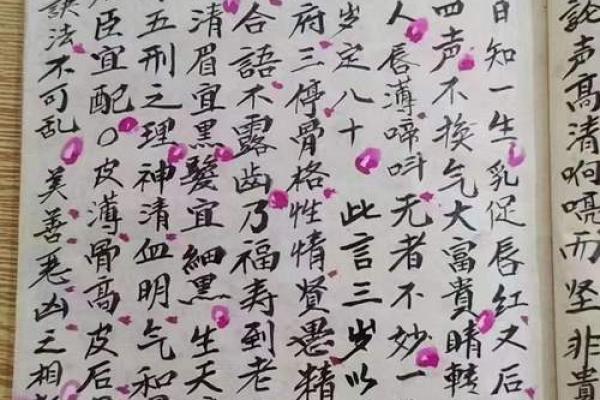 論声高清响喨而坚非貴
日知一生乳促唇红又后
四声不换气大富貴睛轉
人唇薄啼呌无者不妙一
岁定八十 此言三岁以
府三停骨格性情賢愚精
合語不露齿乃福寿到老
清眉宜黑髮宜細黑生天
五刑之理神清血明气和
臣宜配〇皮薄骨高皮后
訣法不可乱 美善恶凶之相